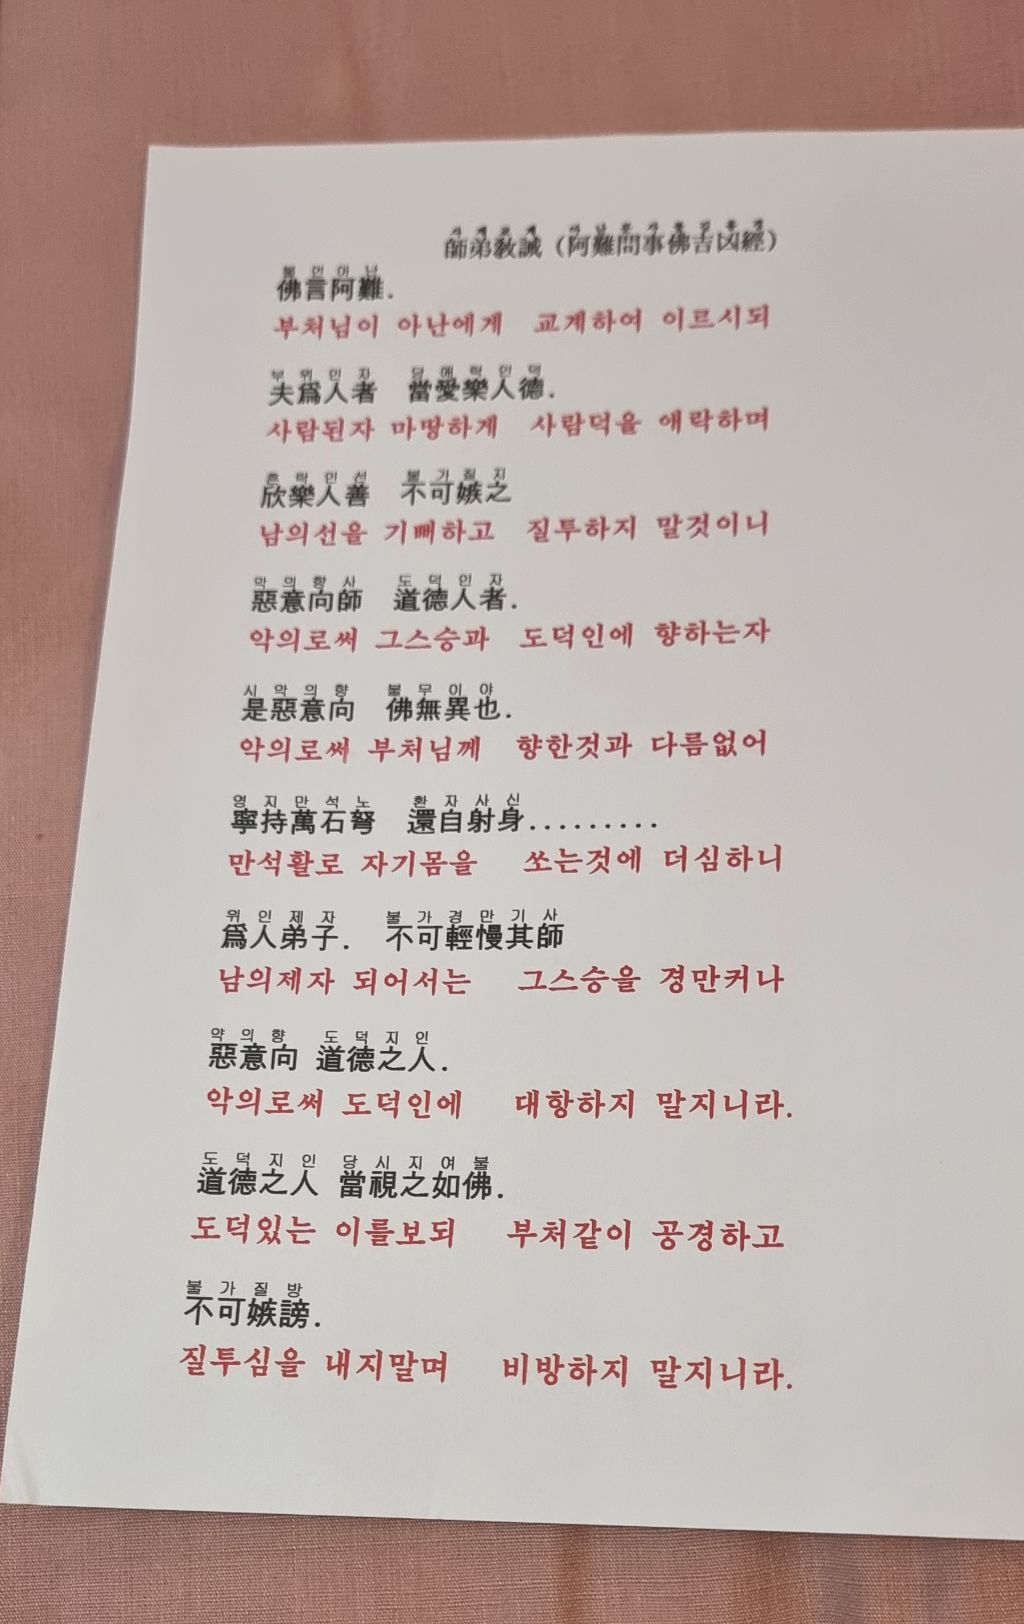 사제교계 아난문사불길흉경
師弟敎誡 (阿難問事佛吉凶經)
불언아난
佛言阿難.
부처님이 아난에게 교계하여 이르시되
부위인자 당애락인덕
夫爲人者 當愛樂人德.
사람된자 마땅하게 사람덕을 애락하며
흔락인선 불가질지
欣樂人善 不可嫉之
남의선을 기뻐하고 질투하지 말것이니
악의향사 도덕인자
惡意向師 道德人者.
악의로써 그스승과 도덕인에 향하는자
시악의향 불무이야
是惡意向 佛無異也.
악의로써 부처님께 향한것과 다름없어
영지만석노 환자사신
寧持萬石弩 還自射身.........
만석활로 자기몸을 쏘는것에 더심하니
위인제자 불가경만기사
爲人弟子. 不可輕慢其師
남의제자 되어서는 그스승을 경만커나
악의향 도덕지인
惡意向 道德之人.
악의로써 도덕인에 대항하지 말지니라.
도덕지인 당시지여불
道德之人 當視之如佛.
도덕있는 이를보되 부처같이 공경하고
불가질방
不可嫉謗.
질투심을 내지말며 비방하지 말지니라.